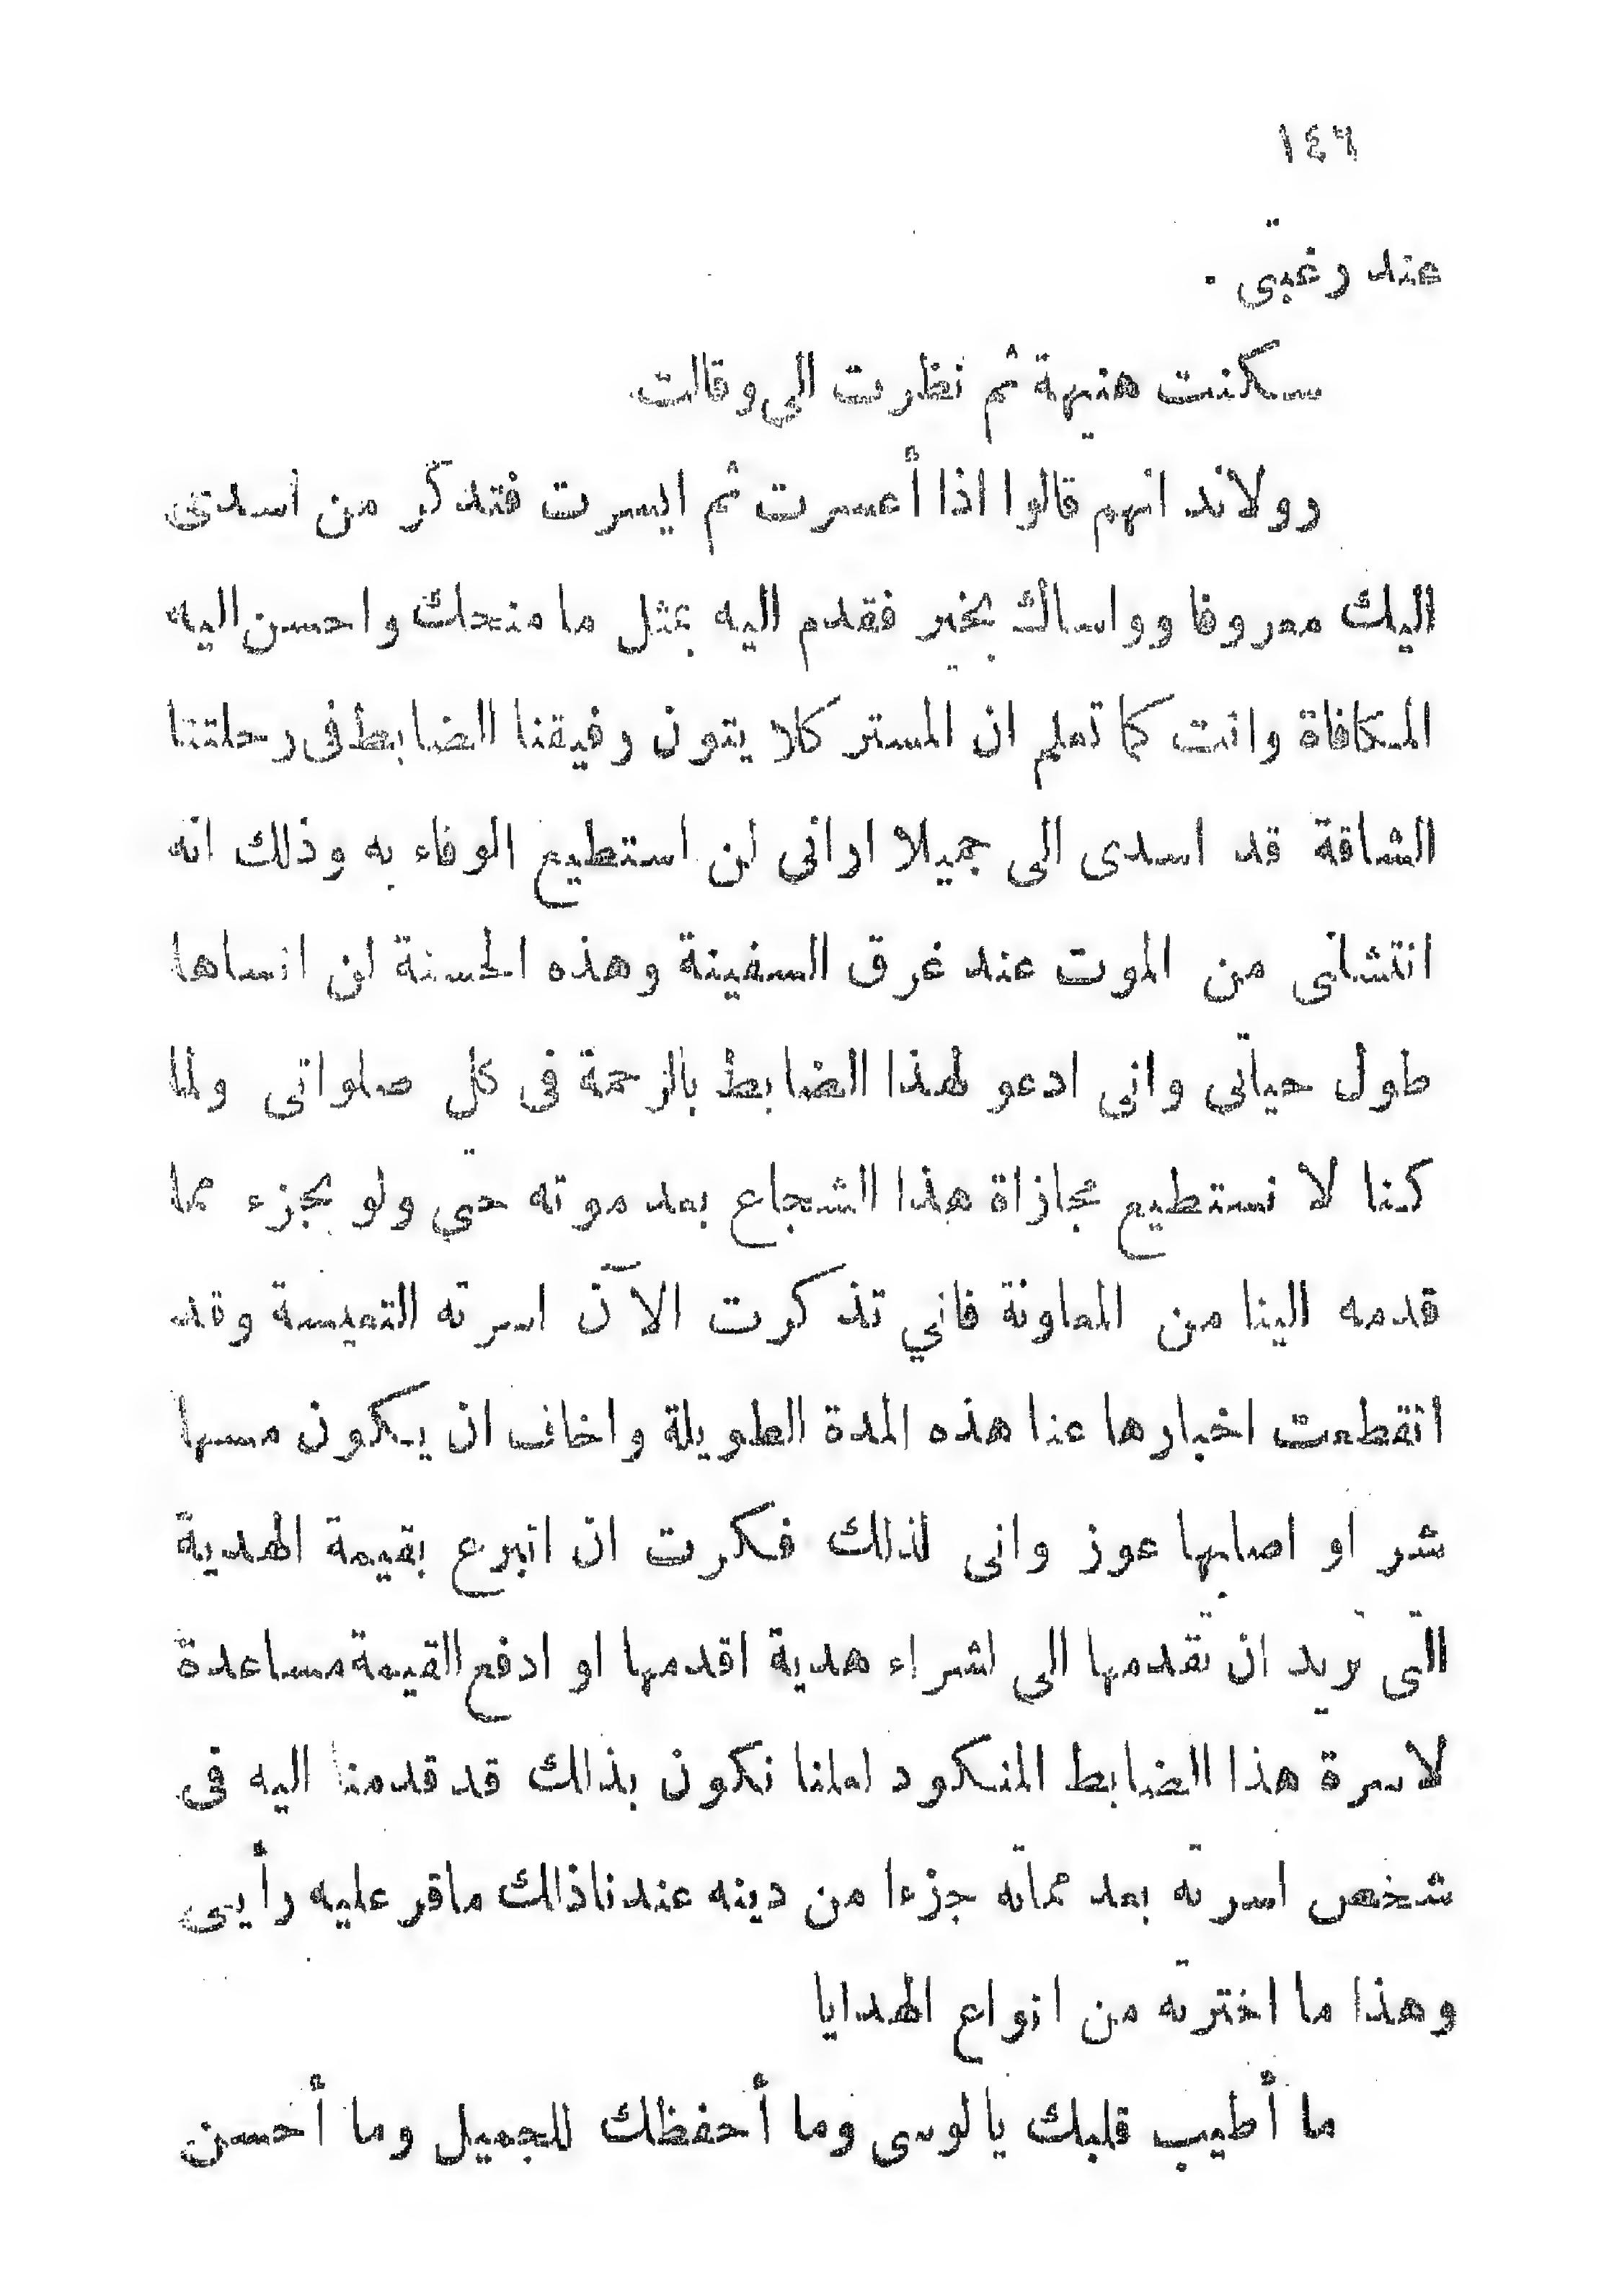 ١٤٦
عند رغبتى .
سكنت هنيهة ثم نظرت الى وقالت
رولاند انهم قالوا اذا أعسرت ثم ايسرت فتذكر من اسدى
اليك معروفا وواساك بخير فقدم اليه بمثل ما منحك واحسن اليه
المكافاة وانت كما تعلم ان المستر كلايتون رفيقنا الضابط فى رحلتنا
الشاقة قد اسدى الى جميلا ارانى لن استطيع الوفاء به وذلك انه
انتشلنى من الموت عند غرق السفينة وهذه الحسنة لن انساها
طول حياتى وانى ادعو لهذا الضابط بالرحمة فى كل صلواتى ولما
كنا لا نستطيع مجازاة هذا الشجاع بعد موته حتى ولو بجزء مما
قدمه الينا من المعاونة فاني تذكرت الآن اسرته التعيسة وقد
انقطعت اخبارها عنا هذه المدة الطويلة واخاف ان يكون مسها
شر او اصابها عوز وانى لذلك فكرت ان اتبرع بقيمة الهدية
التى تريد ان تقدمها الى لشراء هدية اقدمها او ادفع القيمة مساعدة
لاسرة هذا الضابط المنكود لعلنا نكون بذلك قد قدمنا اليه فى
شخص اسرته بعد مماته جزءا من دينه عندنا ذلك ماقر عليه رأيى
وهذا ما اخترته من انواع الهدايا
ما أطيب قلبك يالوسى وما أحفظك للجميل وما أحسن